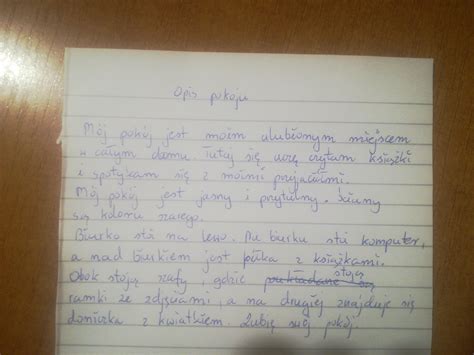 Opis pokoju
Mój pokój jest moim ulubionym miejscem
w całym domu. Tutaj się uczę czytam książki
i spotykam się z moimi przyjaciółmi.
Mój pokój jest jasny i przytulny. Ściany
są koloru szarego.
Biurko stá na lewo. Na biurku stá komputer,
a nad biurkiem jest półka z książkami.
Obok stoją szafy, gdzie stoją
ramki ze zdjęciami, a na drugiej znajduje się
doniczka z kwiatkiem. Lubię swój pokój.